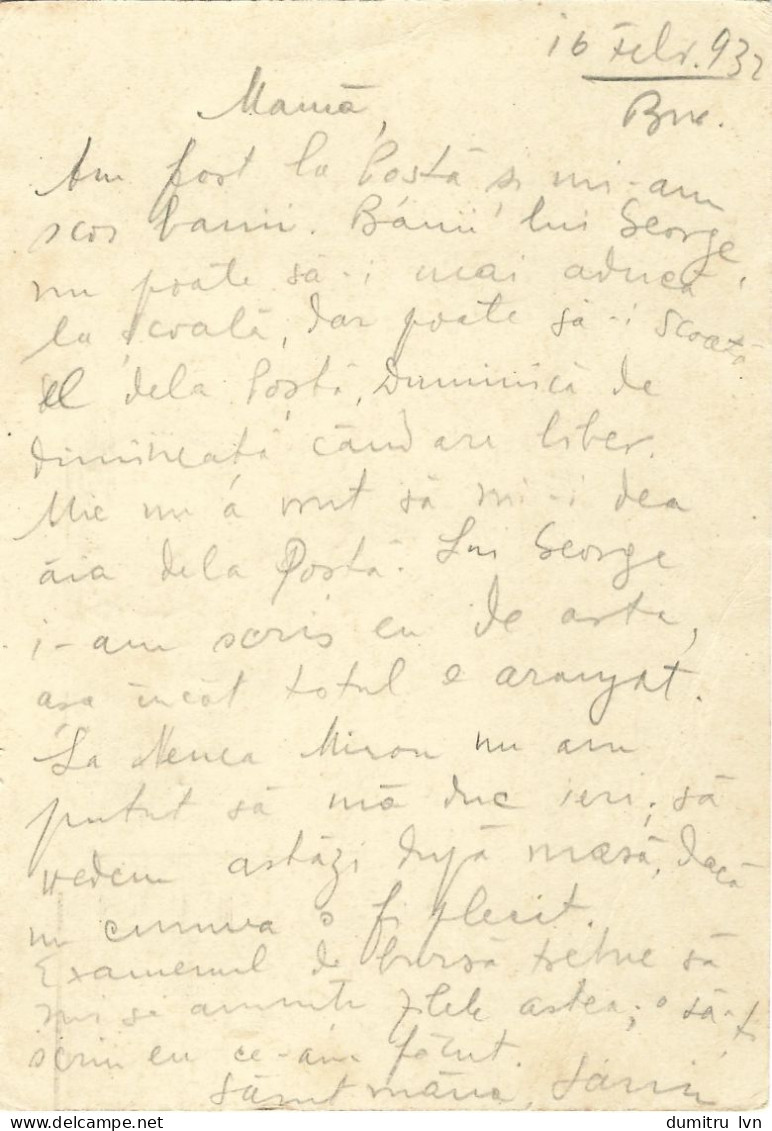 16 Febr. 932
Buc.
Mamă,
Am fost la Poștă și mi-am
scos banii. Banii lui George
nu poate să-i mai aducă
la școală, dar poate să-i scoată
el dela Poștă, Duminică de
dimineață când are liber.
Mie nu a vrut să mi-i dea
ăia dela Poștă. Lui George
i-am scris eu de asta,
așa încât totul e aranjat.
La Nenea Miron nu am
putut să mă duc ieri; să
vedem astăzi după masă, dacă
nu cumva o fi plecat.
Examenul de bursă trebue să
mi se anunțe zilele astea; o să-ți
scriu eu ce-am făcut.
Sărut mâna,
dumitru lvn